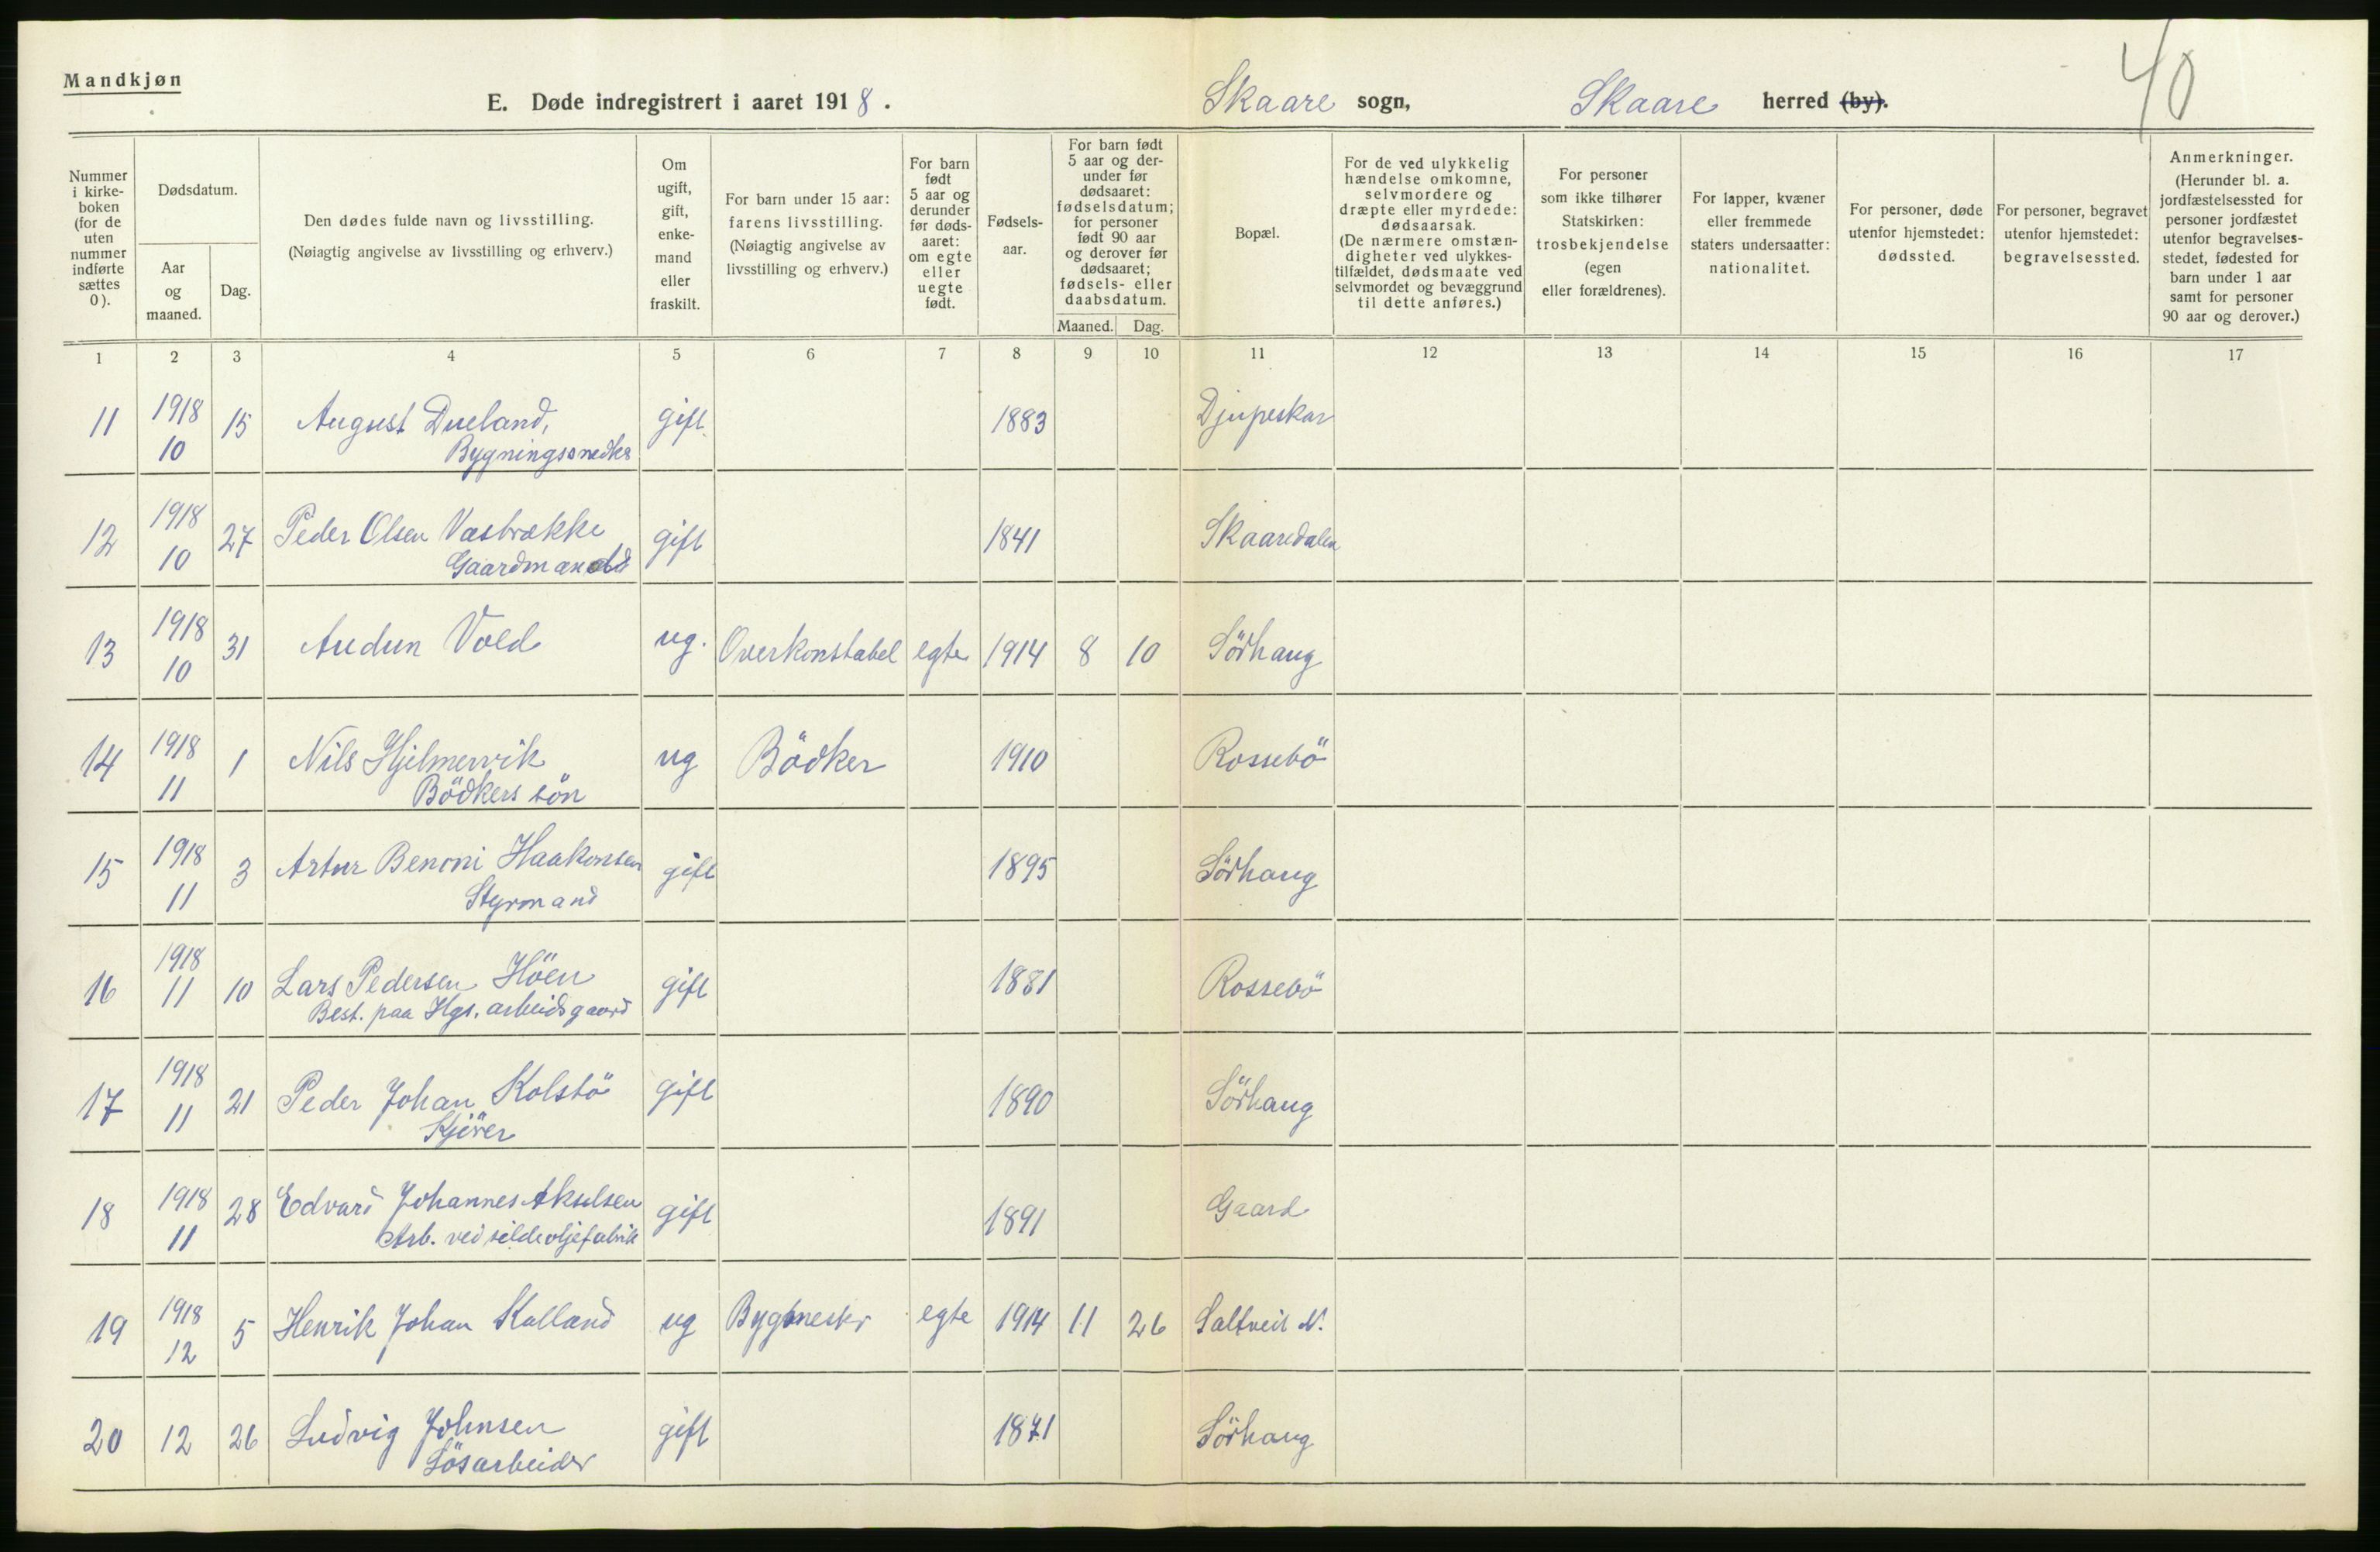 Mandkjøn
E. Døde indregistrert i aaret 1918. Skaare sogn, Skaare herred (by).
40
Nummer i kirke-boken (for de uten nummer indførte sættes 0).
Dødsdatum.
Aar og maaned.
Dag.
Den dødes fulde navn og livsstilling.
(Nøiagtig angivelse av livsstilling og erhverv.)
Om ugift, gift, enke-mand eller fraskilt.
For barn under 15 aar: farens livsstilling.
(Nøiagtig angivelse av livsstilling og erhverv.)
For barn født 5 aar og derunder før døds-aaret: om egte eller uegte født.
Fødsels-aar.
For barn født 5 aar og der-under før dødsaaret: fødselsdatum; for personer født 90 aar og derover før dødsaaret; fødsels- eller daabsdatum.
Maaned. Dag.
Bopæl.
For de ved ulykkelig hændelse omkomne, selvmordere og dræpte eller myrdede: dødsaarsak.
(De nærmere omstæn-digheter ved ulykkes-tilfældet, dødsmaate ved selvmordet og bevæggrund til dette anføres.)
For personer som ikke tilhører Statskirken: trosbekjendelse (egen eller forældrenes).
For lapper, kvæner eller fremmede staters undersaatter: nationalitet.
For personer, døde utenfor hjemstedet: dødssted.
For personer, begravet utenfor hjemstedet: begravelsessted.
Anmerkninger.
(Herunder bl. a. jordfæstelsessted for personer jordfæstet utenfor begravelses-stedet, fødested for barn under 1 aar samt for personer 90 aar og derover.)
1 2 3 4 5 6 7 8 9 10 11 12 13 14 15 16 17
11 1918 10 15 August Dueland, gift 1883 Djupeskar
Bygningssnedker
12 1918 10 27 Peder Olsen Vasbrekke gift 1841 Skaaredalen
Gaardmand
13 1918 10 31 Audun Vold ug. Overkonstabel egte 1914 8 10 Sörhaug
14 1918 11 1 Nils Hjelmervik ug Bödker 1910 Rossebö
Bödkers sön
15 1918 11 3 Artur Benoni Haakonsen gift 1895 Sörhaug
Styrmand
16 1918 11 10 Lars Pedersen Höen gift 1881 Rossebö
Best. paa Hgs. arbeidsgaard
17 1918 11 21 Peder Johan Kolstö gift 1890 Sörhaug
Kjörer
18 1918 11 28 Edvard Johannes Akselsen gift 1891 Gaard
Arb. ved sildeoljefabrik
19 1918 12 5 Henrik Johan Kalland ug Bygmestr egte 1914 11 26 Saltveit N.
20 12 26 Ludvig Johnsen gift 1871 Sörhaug
Lösarbeider